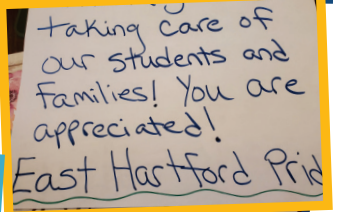 taking care of
our students and
families! You are
appreciated!
East Hartford Prid